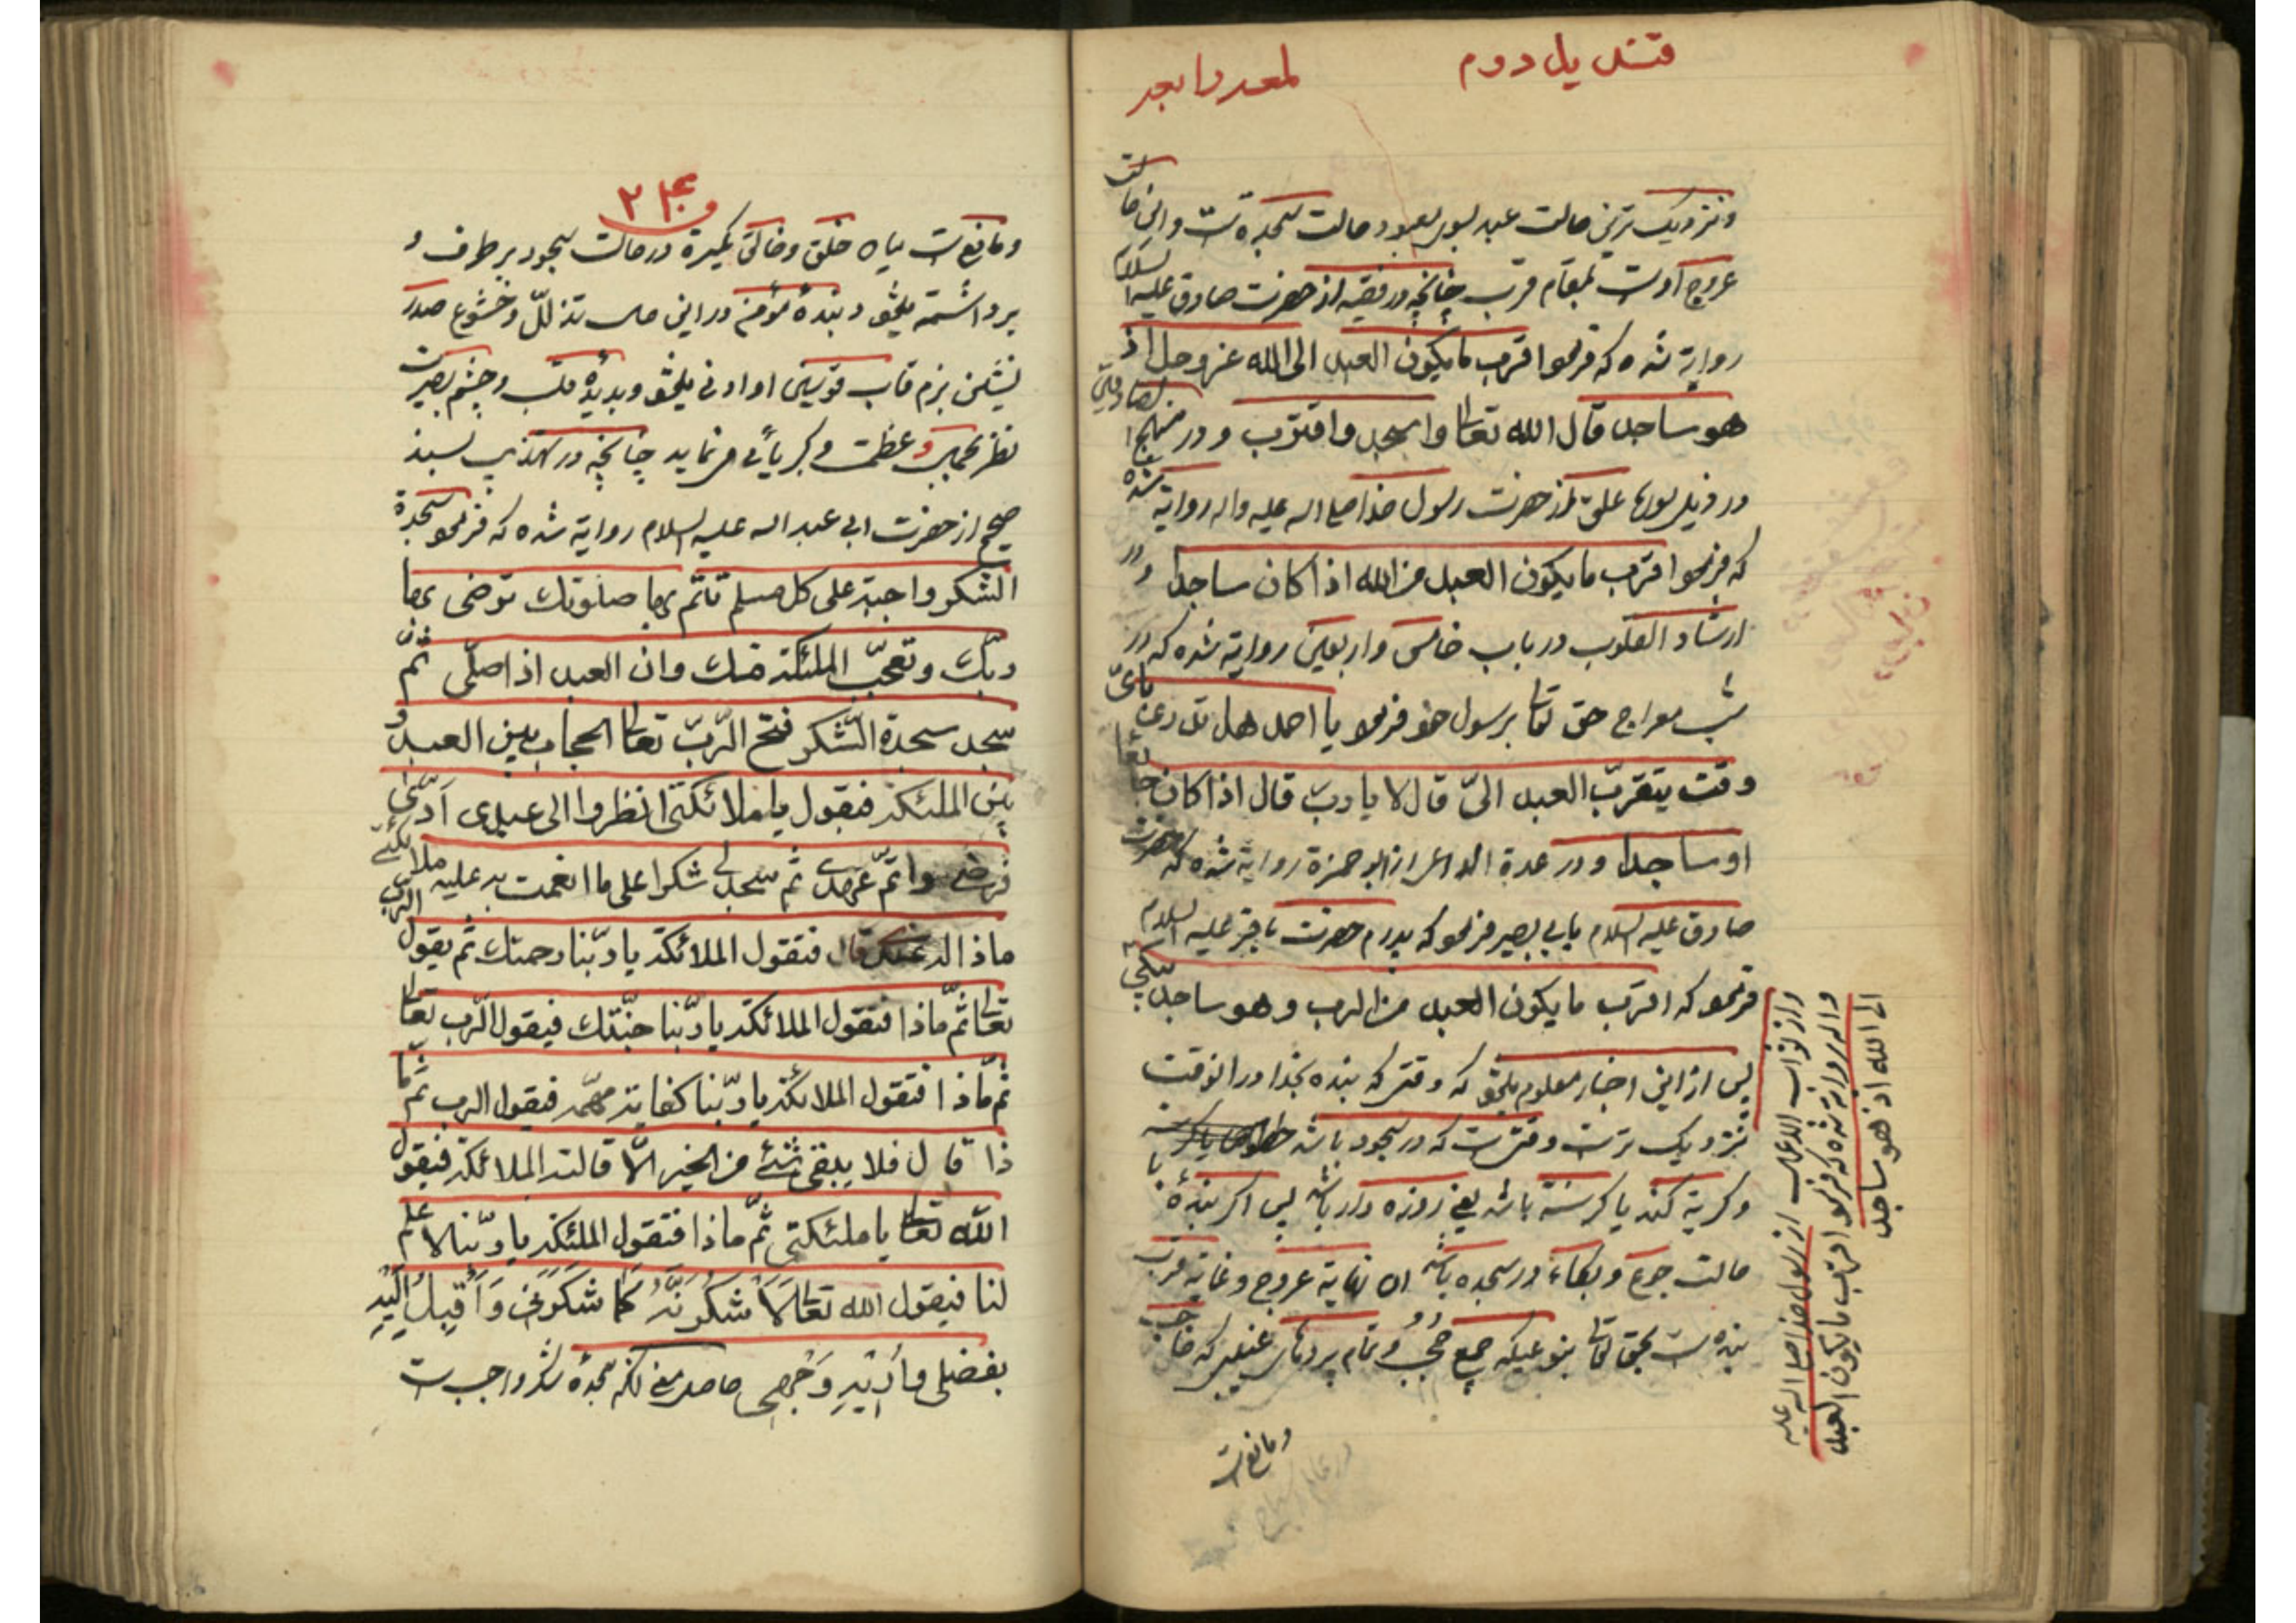 قندیل دوم
ونزدیک ترین حالت عبد بسوی معبود حالت سجده است واین حالت
عروج اوست بمقام قرب چنانچه در فقیه از حضرت صادق علیه السلام
روایة شده که فرمود اقرب مایکون العبد الی الله عز وجل اذ
هو ساجد قال الله تعالی واسجد واقترب و در منهج الصادقین
در ذیل سوره علق از حضرت رسول خدا صلی الله علیه واله روایة شده
که فرمود اقرب ما یکون العبد من الله اذا کان ساجدا و در
ارشاد القلوب در باب خامس واربعین روایة شده که در
شب معراج حق تعالی برسول خود فرمود یا احمد هل تدری بای
وقت یتقرب العبد الیّ قال لا یا رب قال اذا کان جائعا
او ساجدا و در عدة الداعی از ابو حمزة روایة شده که حضرت
صادق علیه السلام بابی بصیر فرمود که پدرم حضرت باقر علیه السلام
فرمود که اقرب ما یکون العبد من الرب و هو ساجد یبکی
پس از این اخبار معلوم میشود که وقتی که بنده بخدا در انوقت
نزدیک ترست وقتی ست که در سجود باشد
وکریة کند یا کرسنة باشد یعنی روزه دار باشد پس اکر بندهٔ با
حالت جوع و بکاء در سجده باشد ان نهایة عروج وغایة قرب
بنده است بحق تعالی بنوعیکه جمیع حُجُب و تمام پردهای غیبی که حاجب
ومانع است
واز ثواب الاعمال از رسول خدا صلی الله علیه
واله روایة شده که فرمود اقرب ما یکون العبد
الی الله اذ هو ساجد
ومانع است میاه خلق وخالق میکیرد در حالت سجود بر طرف و
برداشته میشود و بندهٔ مؤمن در این حالت تذلّل وخشوع صدر
نشین بزم قاب قوسین او ادنی میشود وبدیدهٔ قلب وچشم بصیرت
نظر بجمال و عظمت وکبریائی میفرماید چنانچه در تهذیب بسند
صحیح از حضرت ابی عبد الله علیه السلام روایة شده که فرمود سجدة
الشکر واجبة علی کل مسلم تتم بها صلوتك ترضی بها
ربّك وتعجبّ الملئکة منك وان العبد اذا صلّی ثمّ
سجد سجدة الشّکر فتح الرّبّ تعالی الحجاب بین العبد و
بین الملئکة فیقول یا ملائکتی انظروا الی عبدی ادّی
فرضی واتمّ عهدی ثم سجد لی شکرا علی ما انعمت به علیه ملائکتی
ماذا له عندی قال فتقول الملائکة یا ربّنا رحمتك ثم یقول الرب
تعالی ثمّ ماذا فتقول الملائکة یا ربّنا جنّتك فیقول الرّب تعالی
ثم ماذا فتقول الملائکة یا ربّنا کفایة مهمّه فیقول الرب ثمّ ما
ذا قال فلا یبقی شئ من الخیر الّا قالته الملائکة فیقول
الله تعالی یا ملئکتی ثمّ ماذا فتقول الملئکة یا ربّنا لا علم
لنا فیقول الله تعالی لَاَشکُرَنَّهُ کَمٰا شَکَرَنی وَاُقبِلُ اِلَیْهِ
بفضلی واُریهِ وَجْهی حاصل معنی انکه سجدهٔ شکر واجب است